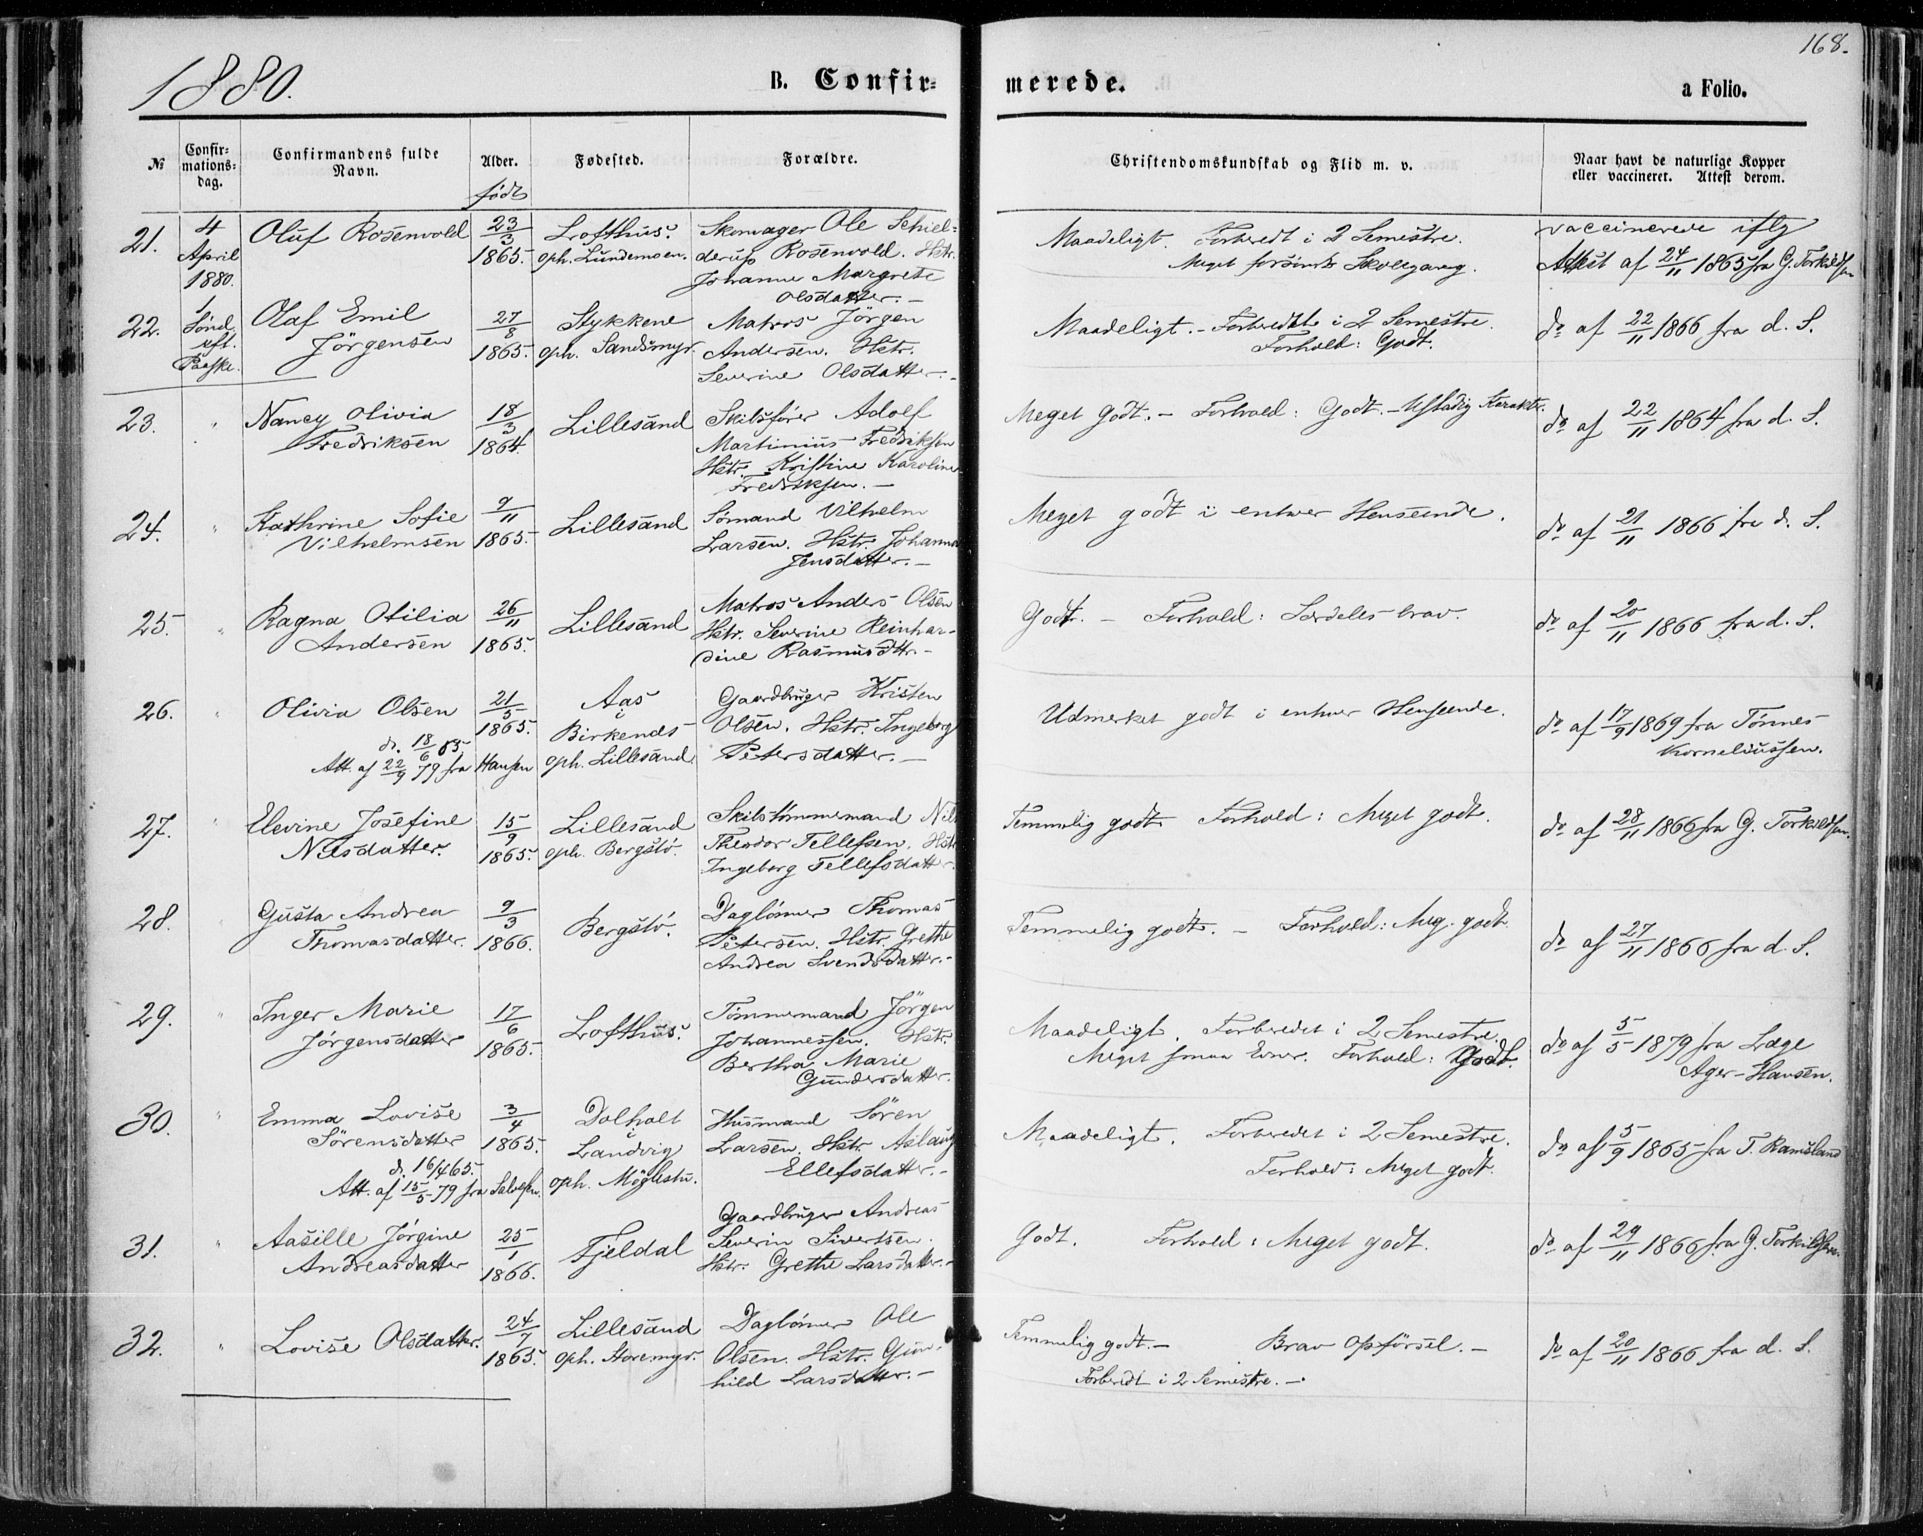 1880.
B. Confir=
merede.
a Folio.
168.
№
Confir=
mations=
dag.
Confirmandens fulde
Navn.
Alder.
født
Fødested.
Forældre.
Christendomskundskab og Flid m. v.
Naar havt de naturlige Kopper
eller vaccineret. Attest derom.
21.
4
April
1880.
1
Sönd.
eft.
Paaske.
Oluf Rosenvold
23/3
1865.
Lofthus.
oph. Lundemoen.
Skomager Ole Schiel-
derup Rosenvold. Hstr.
Johanne Margrete
Olsdatter. —
Maadeligt. Forberedt i 2 Semestre.
Meget forsömt Skolegang.
vaccinerede iflg
Attest af 24/11 1865 fra G. Torkildsen
22.
Olaf Emil
Jörgensen
27/8
1865.
Stykkene
oph. Sandsmyr.
Matros Jörgen
Andersen. Hstr.
Severine Olsdatter. -
Maadeligt. - Forberedt i 2 Semestre.
Forhold: Godt.
do af 22/11 1866 fra d. S.
23.
"
Nancy Olivia
Fredriksen
18/3
1864.
Lillesand
Skibsförer Adolf
Martinius Fredriksen
Hstr. Kristine Karoline
Fredriksen. —
Meget godt. - Forhold: Godt. - Ustadig Karakter.
do af 22/11 1864 fra d. S.
24.
"
Kathrine Sofie
Vilhelmsen
9/11
1865.
Lillesand
Sömand Vilhelm
Larsen. Hstr. Johanna
Jensdatter. —
Meget godt i enhver Henseende.
do af 21/11 1866 fra d. S.
25.
"
Ragna Otilia
Andersen
26/11
1865.
Lillesand
Matros Anders Olsen
Hstr. Severine Reinhar-
dine Rasmusdttr. -
Godt. — Forhold: Særdeles brav.
do af 20/11 1866 fra d. S.
26.
"
Olivia Olsen
d. 18/6 65.
Att. af 22/9 79 fra Hansen
21/5
1865.
Aas
i
Birkenes
oph. Lillesand.
Gaardbruger Kristen
Olsen. Hstr. Ingeborg
Petersdatter. —
Udmerket godt i enhver Henseende.
do af 17/9 1869 fra Tönnes
Korneliussen.
27.
"
Elevine Josefine
Nilsdatter.
15/9
1865.
Lillesand
oph. Bergstö.
Skibstömmermand Nils
Theodor Tellefsen. Hstr.
Ingeborg Tellefsdatter.
Temmelig godt. Forhold: Meget godt.
do af 28/11 1866 fra G. Torkildsen.
28.
"
Gusta Andrea
Thomasdatter.
9/3
1866.
Bergstö.
Daglönner Thomas
Petersen. Hstr. Grethe
Andrea Svendsdatter. -
Temmelig godt. — Forhold: Meg. godt.
do af 27/11 1866 fra d. S.
29.
"
Inger Marie
Jörgensdatter
17/6
1865.
Lofthus.
Tömmermand Jörgen
Johannessen. Hstr.
Bertha Marie
Gundersdatter.
Maadeligt. Forberedet i 2 Semestre.
Meget smaa Evner. Forhold: Godt.
do af 5/5 1879 fra Læge
Ager-Hansen.
30.
"
Emma Lovise
Sörensdatter
d. 16/4 65.
Att. af 15/5 79 fra Salvesen.
3/4
1865.
Dolholt
i
Landvig
oph. Möglestu.
Husmand Sören
Larsen. Hstr. Aslaug
Ellefsdatter. -
Maadeligt. Forberedet i 2 Semestre.
Forhold: Meget godt.
do af 5/9 1865 fra T. Ramsland
31.
"
Aasille Jörgine
Andreasdatter
25/1
1866.
Fjeldal
Gaardbruger Andreas
Severin Sivertsen.
Hstr. Grethe Larsdatter. -
Godt. Forhold: Meget godt.
do af 29/11 1866 fra G. Torkildsen.
32.
"
Lovise Olsdatter.
24/7
1865.
Lillesand
oph. Storemyr.
Daglönner Ole
Olsen. Hstr. Gun-
hild Larsdatter. —
Temmelig godt. — Brav Opförsel. —
Forberedt i 2 Semestre. —
do af 20/11 1866 fra d. S.